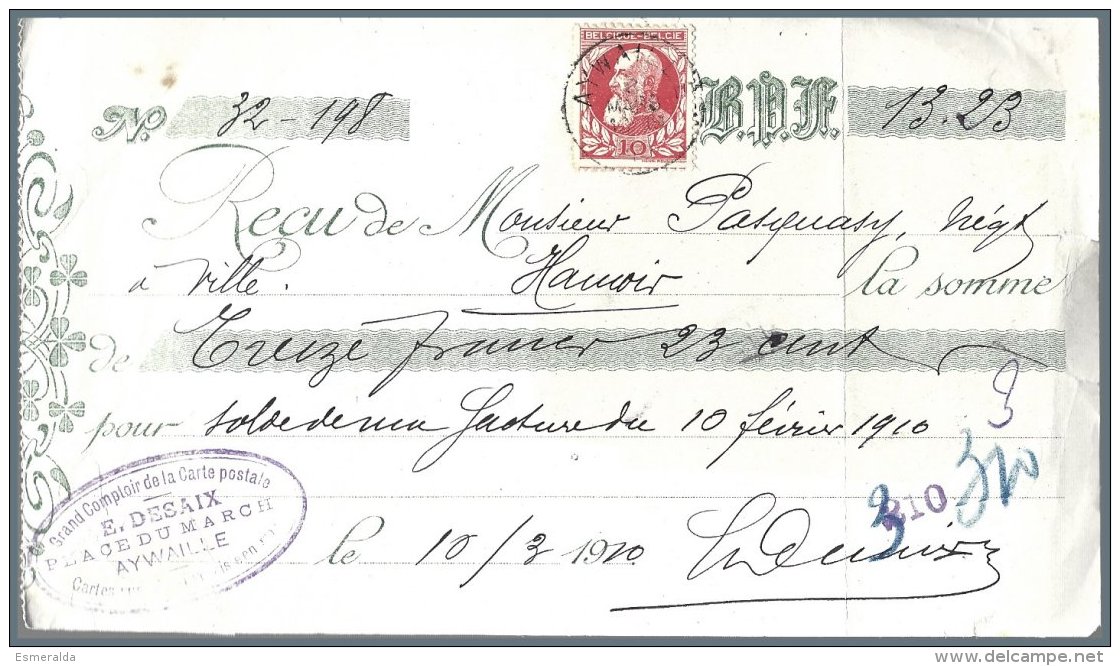 BELGIQUE-BELGIË
AYWAI
10
No. 32-198 B.P.F. 13.23
Reçu de Monsieur Pasquasy, Négt
à ville. Hamoir la somme
de Treize francs 23 cent
pour solde de ma facture du 10 février 1910
3
320
3
210
Grand Comptoir de la Carte postale
E. DESAIX
PLACE DU MARCH
AYWAILLE
Cartes
le 10/3 1910 E. Desaix
Esmeralda
www.delcampe.net